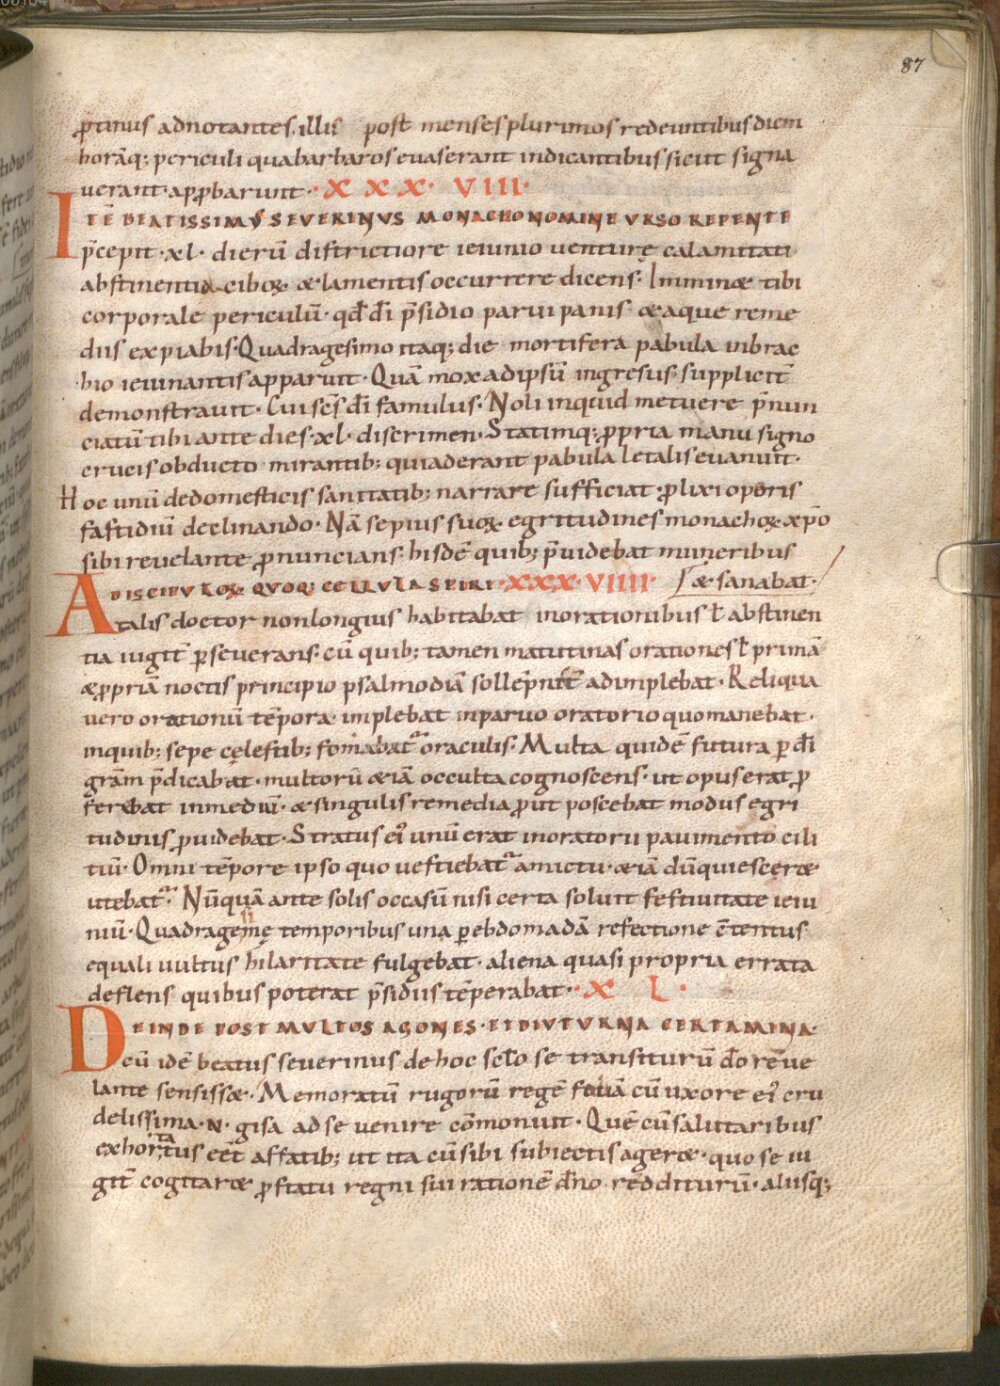 87
ꝓtinus adnotantes. illis post menses plurimos redeuntibus diem
horāq; periculi qua barbaros evaserant indicantibus sicut signa
verant apꝓbarunt · X X X · VIII ·
ITĒ BEATISSIMUS SEVERINUS MONACHO NOMINE URSO REPENTE
p̄cepit · xl · dierū districtiore ieiunio venturę calamitati
abstinentia ciboꝝ & lamentis occurrere dicens. Imminæ tibi
corporale periculū · qđ dī p̄sidio parvi panis & aque reme
diis expiabis · Quadragesimo itaq; die mortifera pabula inbrac
hio ieiunantis apparuit · Quā mox ad ipsū ingresus suppliciť
demonstravit · Cui scs̄ dī famulus · Noli inquid metuere p̄nun
ciatū tibi ante dies · xl · discrimen · Statimq; ꝓpria manu signo
crucis obducto mirantib; qui aderant pabula letalis evanuit ·
Hoc unū de domesticis sanitatib; narrare sufficiat · ꝓlixi operis
fastidiū declinando · Nā sepius suoꝝ egritudines monachoꝝ xp̄o
sibi revelante ꝓnuncians · hisdē quib; p̄videbat muneribus
& sanabat ·
A DISCIPULOꝜ QUOQ; CELLULA SPIRI · XXX · VIIII ·
talis doctor non longius habitabat in orationibus ł abstinen
tia iugiť ꝑseverans · cū quib; tamen matutinas orationes ł primā
& ꝓpriā noctis principio psalmodiā sollēpniť adimplebat · Reliqua
vero orationū tēpora · implebat in parvo oratorio quo manebat ·
in quib; sepe cęlestib; fomabatᷣ oraculis · Multa quidē futura ꝑ dī
grām p̄dicabat · multorū & iā occulta cognoscens · ut opus erat ꝓ
ferebat in mediū · & singulis remedia ꝓut poscebat modus egri
tudinis ꝓvidebat · Stratus ei᾽ unū erat in oratorii pavimento cili
tiū · Omni tēpore ipso quo vestiebatᷣ amictu · & iā dū quiesceræ
utebatᷣ · Nūquā ante solis occasū nisi certa soluit festivitate ieiu
niū · Quadragesimę temporibus una ꝑ ebdomadā refectione c̄tentus
equali vultus hilaritate fulgebat · aliena quasi propria errata
deflens quibus poterat p̄sidiis tēperabat · X L ·
DEINDE POST MULTOS AGONES · ET DIUTURNA CERTAMINA ·
cū idē beatus severinus de hoc sclo se transiturū dō reve
lante sensissæ · Memoratū rugorū regē fevā cū uxore ei᾽ cru
delissima · N · gisa ad se venire cōmonuit · Quē cū salutaribus
exhortatus eēt affatib; ut ita cū sibi subiectis ageræ · quo se iu
giť cogitaræ ꝓ statu regni sui rationē dn̄o redditurū · aliisq;